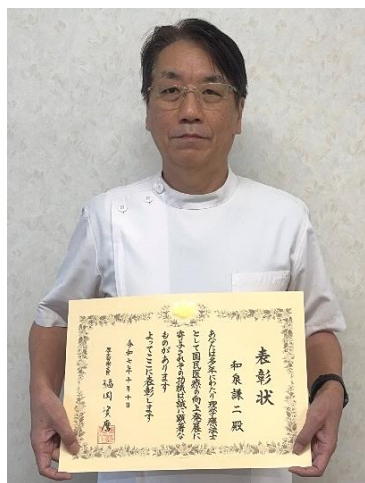 表彰状
和泉謙二殿
あなたは多年にわたり理学療法士
として国民医療の向上発展に
寄与されその功績は誠に顕著な
ものがあります
よってここに表彰します
令和七年十月十日
厚生労働大臣 福岡資麿